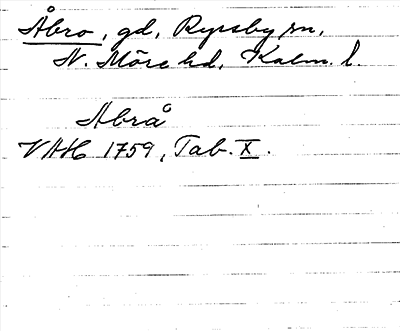 Åbro, gd, Ryssby sn,
N. Möre hd, Kalm. l.
Abrå
VAH 1759, Tab. X.